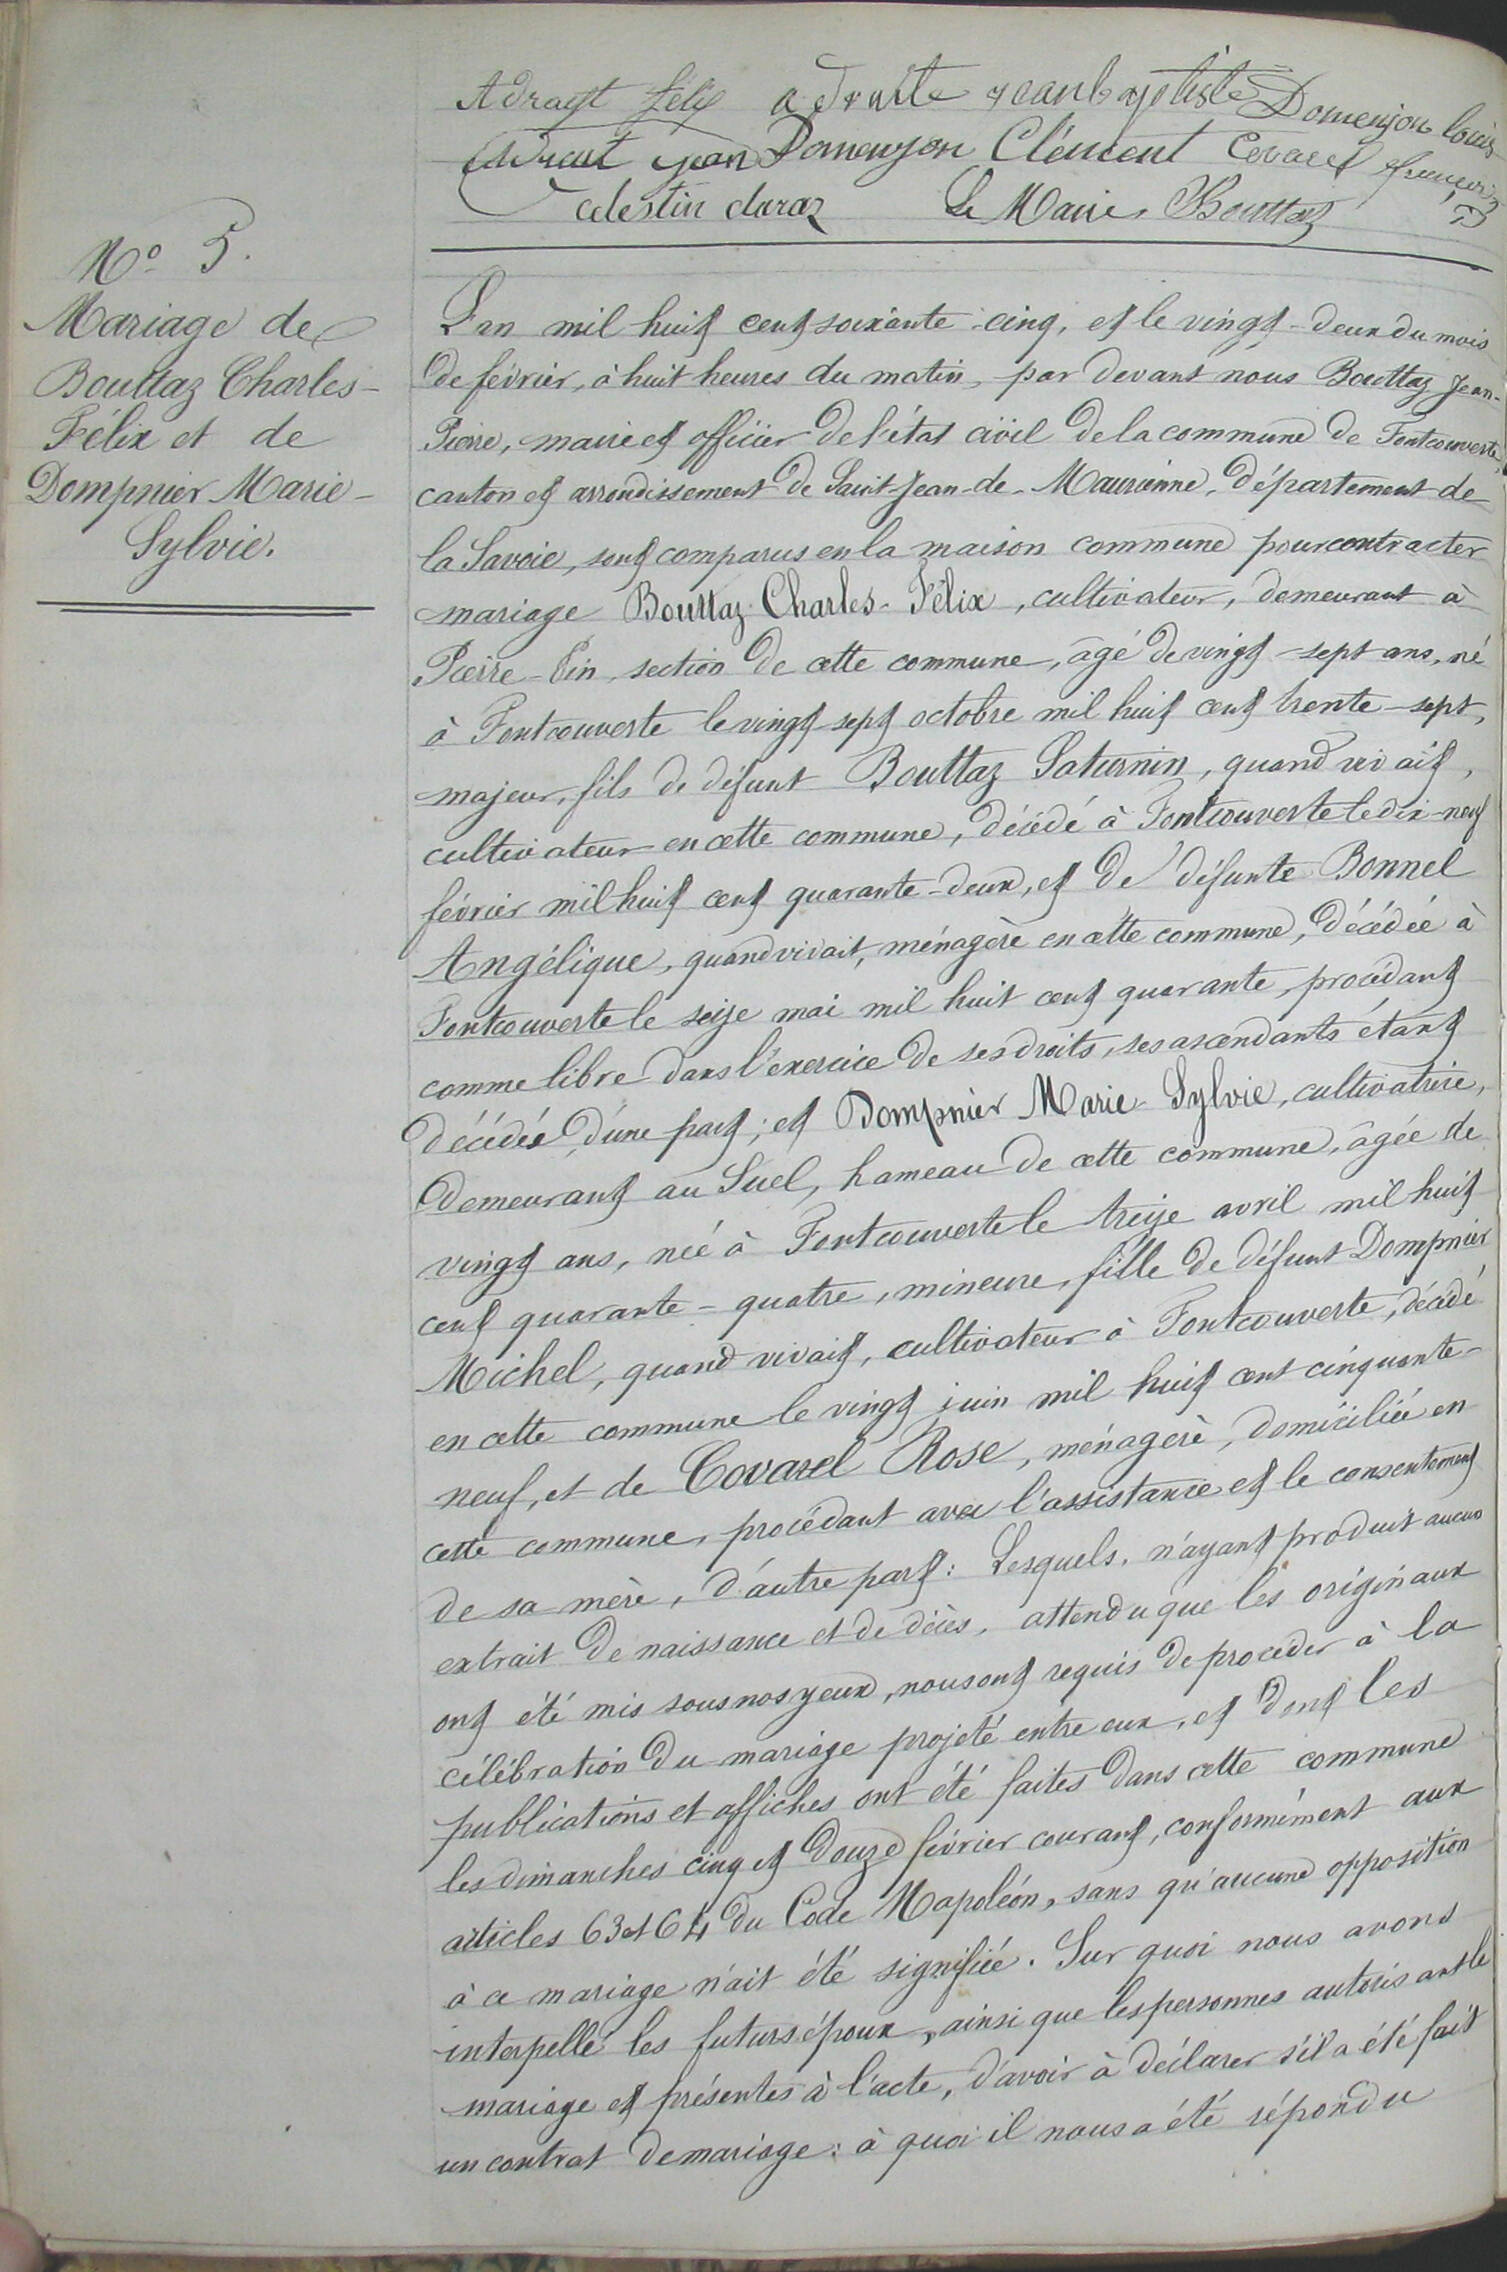 Adrayt Félix a droite jeanbaptiste Domenjon louis
Adrait jean Domenjon Clément Covarel françois
Celestin daraz Le Maire, Bouttaz
N° 5.
Mariage de
Bouttaz Charles-
Félix et de
Dompnier Marie-
Sylvie.
L'an mil huit cent soixante-cinq, et le vingt-deux du mois
de février, à huit heures du matin, par devant nous Bouttaz Jean-
Pierre, maire et officier de l'état civil de la commune de Fontcouverte,
canton et arrondissement de Saint-Jean-de-Maurienne, département de
la Savoie, sont comparus en la maison commune pour contracter
mariage Bouttaz Charles-Félix, cultivateur, demeurant à
Pierre-Pin, section de cette commune, âgé de vingt-sept ans, né
à Fontcouverte le vingt-sept octobre mil huit cent trente-sept,
majeur, fils de défunt Bouttaz Saturnin, quand vivait,
cultivateur en cette commune, décédé à Fontcouverte le dix-neuf
février mil huit cent quarante-deux, et de défunte Bonnel
Angélique, quand vivait, ménagère en cette commune, décédée à
Fontcouverte le seize mai mil huit cent quarante, procédant
comme libre dans l'exercice de ses droits, ses ascendants étant
décédés, d'une part; et Dompnier Marie-Sylvie, cultivatrice,
demeurant au Suel, hameau de cette commune, âgée de
vingt ans, née à Fontcouverte le treize avril mil huit
cent quarante-quatre, mineure, fille de défunt Dompnier
Michel, quand vivait, cultivateur à Fontcouverte, décédé
en cette commune le vingt juin mil huit cent cinquante-
neuf, et de Covarel Rose, ménagère, domiciliée en
cette commune, procédant avec l'assistance et le consentement
de sa mère, d'autre part: Lesquels, n'ayant produit aucun
extrait de naissance et de décès, attendu que les originaux
ont été mis sous nos yeux, nous ont requis de procéder à la
célébration du mariage projeté entre eux, et dont les
publications et affiches ont été faites dans cette commune
les dimanches cinq et douze février courant, conformément aux
articles 63 et 64 du Code Napoléon, sans qu'aucune opposition
à ce mariage n'ait été signifiée. Sur quoi nous avons
interpellé les futurs époux, ainsi que les personnes autorisant le
mariage et présentes à l'acte, d'avoir à déclarer s'il a été fait
un contrat de mariage: à quoi il nous a été répondu